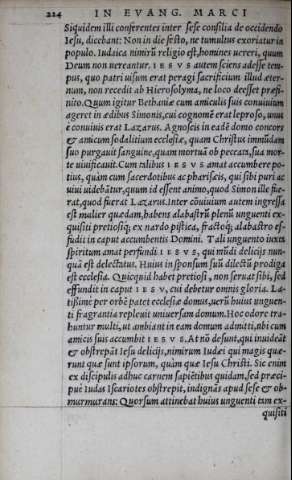 224 IN EVANG. MARCI
Siquidem illi conferentes inter sese consilia de occidendo
Iesu, dicebant: Non in die festo, ne tumultus exoriatur in
populo. Iudaica nimirũ religio est, homines uereri, quum
Deum non uereantur. IESVS autem sciens adesse tem-
pus, quo patri uisum erat peragi sacrificium illud æter-
num, non recedit ab Hierosolyma, ne loco deesset præsti-
nito. Quum igitur Bethaniæ cum amiculis suis conuiuium
ageret in ædibus Simonis, cui cognomẽ erat leproso, unus
è conuiuis erat Lazarus. Agnoscis in eadẽ domo concors
& amicum sodalitium ecclesiæ, quam Christus immũdam
suo purgauit sanguine, quam mortuã ob peccata, sua mor-
te uiuificauit. Cum talibus IESVS amat accumbere po-
tius, quàm cum sacerdotibus ac pharisæis, qui sibi puri ac
uiui uidebãtur, quum id essent animo, quod Simon ille fue-
rat, quod fuerat Lazarus. Inter cõuiuium autem ingressa
est mulier quædam, habens alabastrũ plenũ unguenti ex-
quisiti pretiosiq́; ex nardo pistica, fractoq́; alabastro ef-
fudit in caput accumbentis Domini. Tali unguento iuxta
spiritum amat perfundi IESVS, qui mũdi delicijs nun-
quã est delectatus. Huius in sponsum suũ dilectũ prodiga
est ecclesia. Quicquid habet pretiosi, non seruat sibi, sed
effundit in caput IESV, cui debetur omnis gloria. La-
tissimè per orbẽ patet ecclesiæ domus, uerũ huius unguen-
ti fragrantia repleuit uniuersam domum. Hoc odore tra-
huntur multi, ut ambiant in eam domum admitti, ubi cum
amicis suis accumbit IESVS. At nõ desunt, qui inuideãt
& obstrepãt Iesu delicijs, nimirum Iudæi qui magis quæ-
runt quæ sunt ipsorum, quàm quæ Iesu Christi. Sic enim
ex discipulis adhuc carnem sapiẽtibus quidam, sed præci-
puè Iudas Iscariotes obstrepit, indignãs apud sese & ob-
murmurans: Quorsum attinebat huius unguenti tam ex-
quisiti